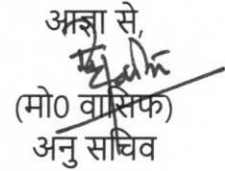 आज्ञा से,
(मो0 वासिफ)
अनु सचिव